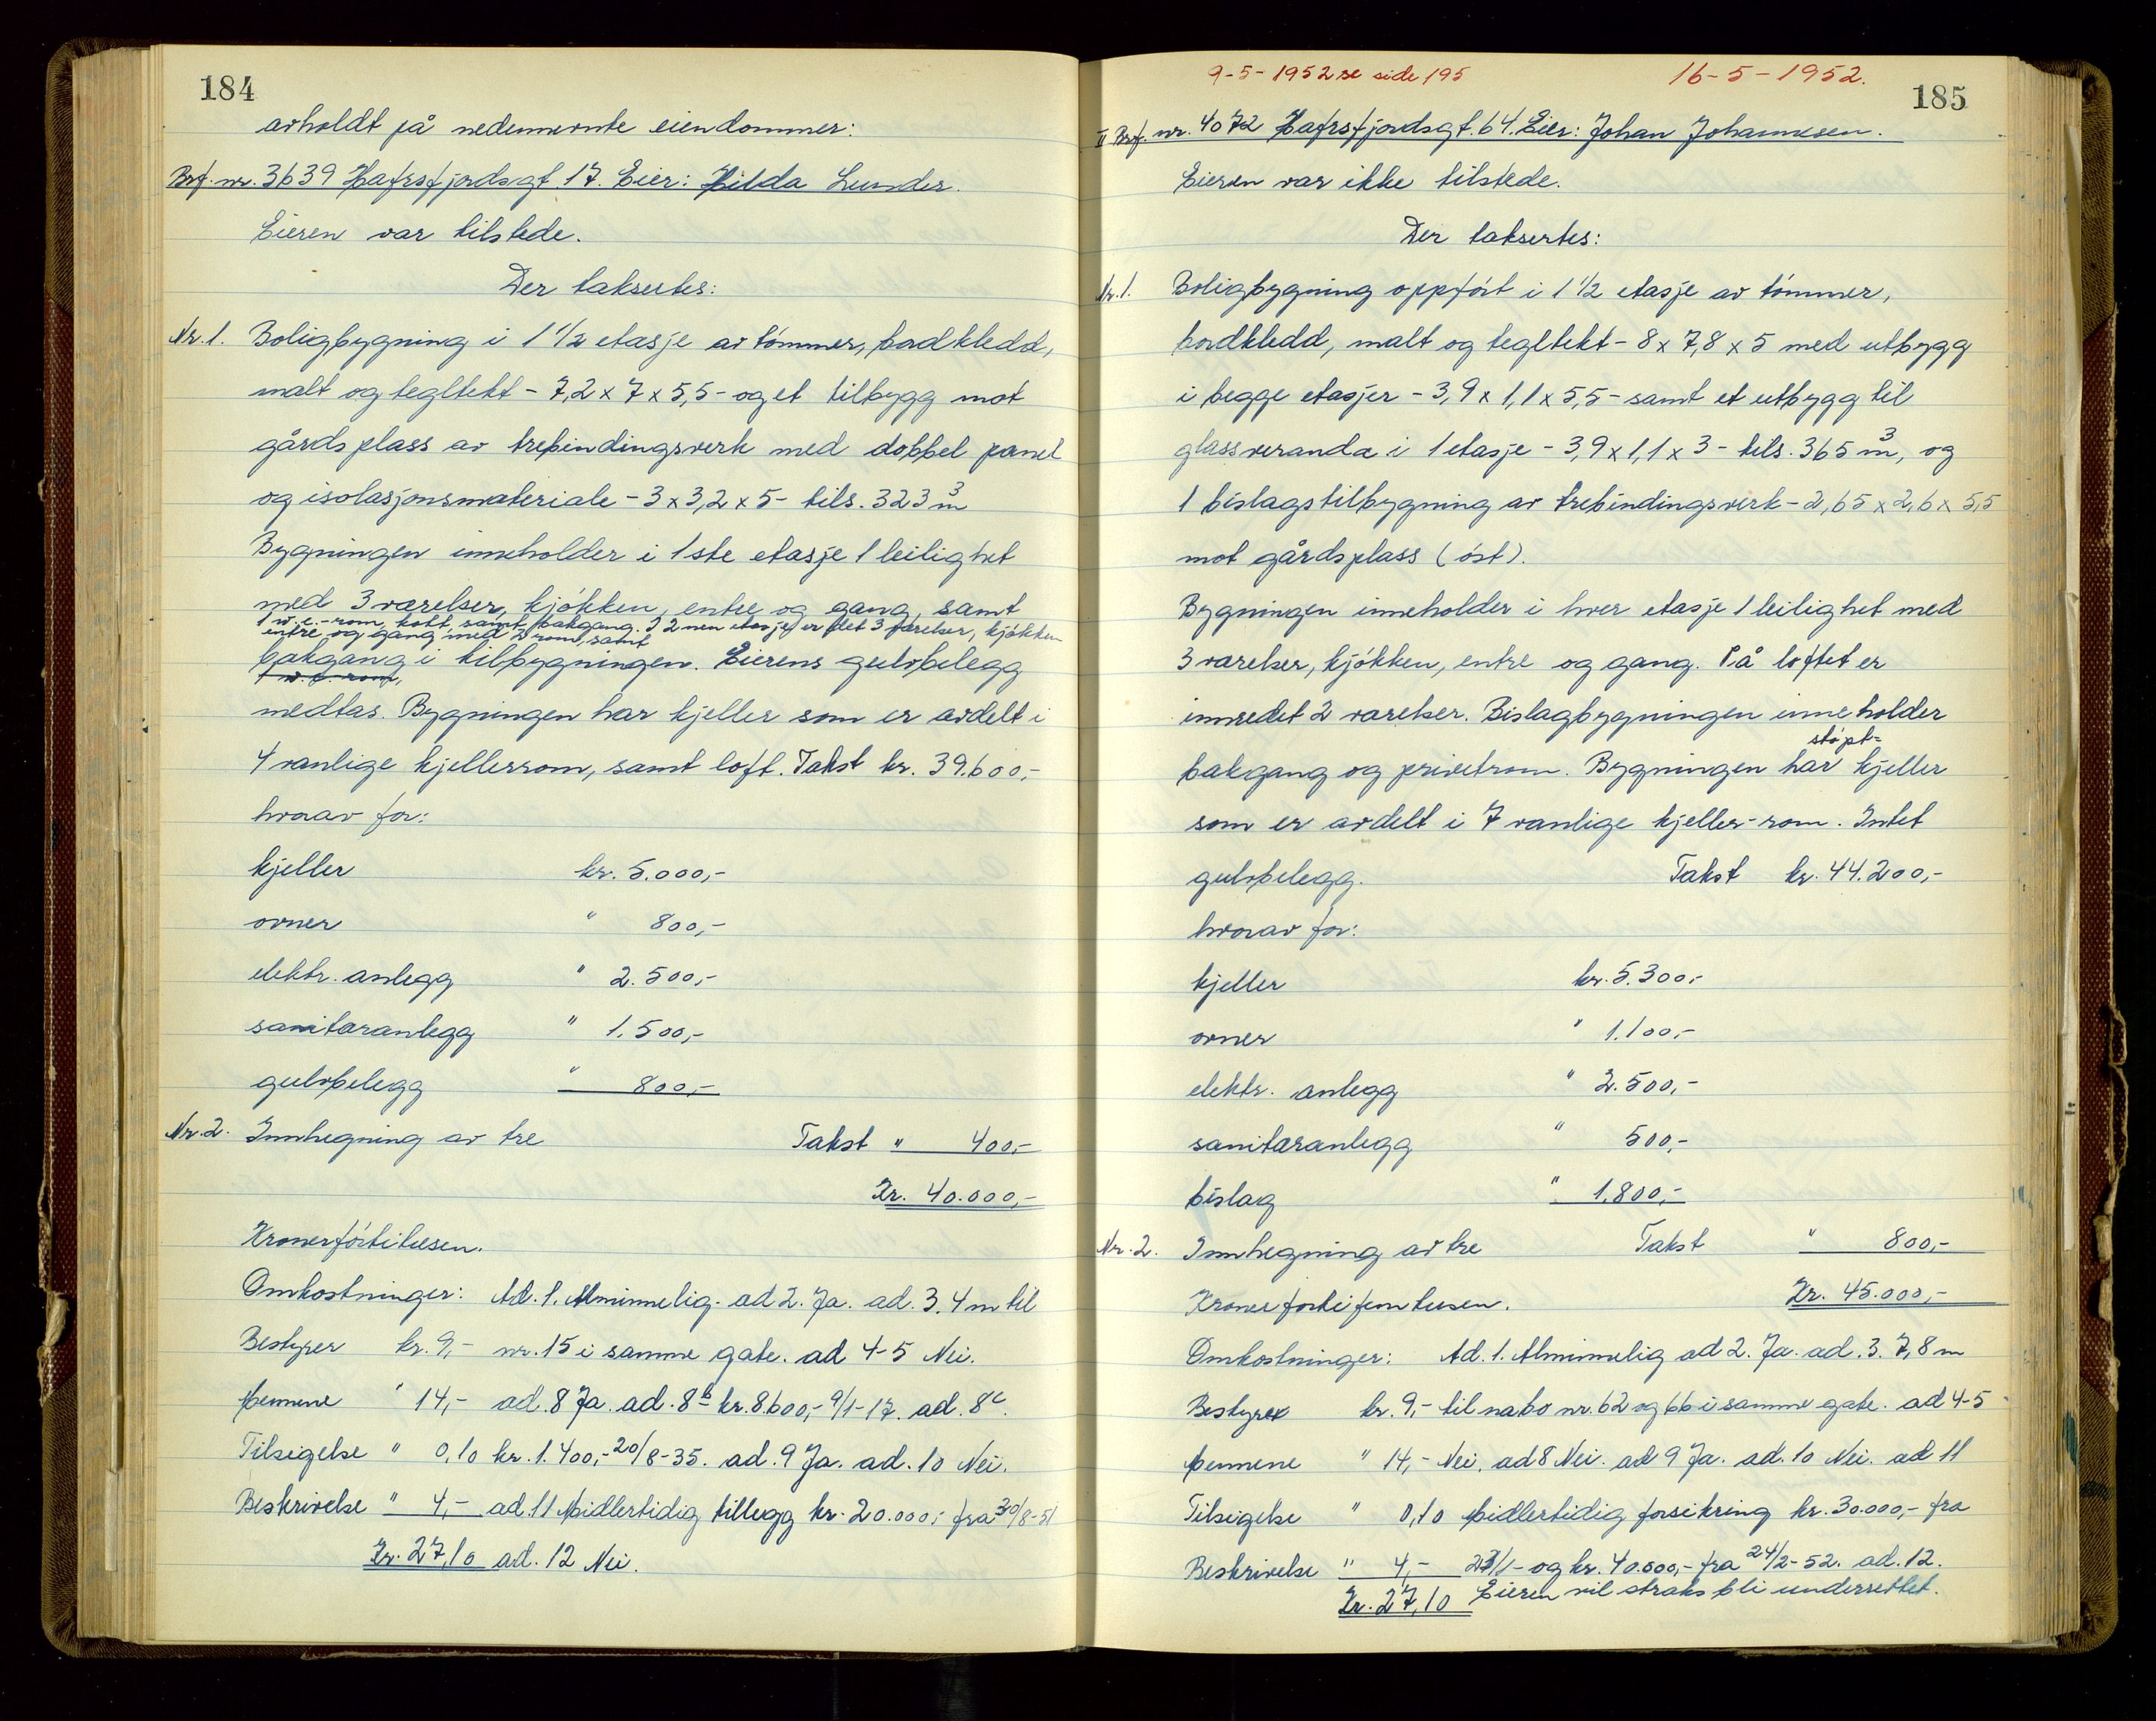 184
avholdt på nedennevnte eiendommer:
Brf. nr. 3639 Hafrsfjordsgt. 17. Eier: Hilda Lunder.
Eieren var tilstede.
Der taksertes:
Nr. 1. Boligbygning i 1 1/2 etasje av tømmer, bordkledd,
malt og tegltekt - 7,2 x 7 x 5,5 - og et tilbygg mot
gårdsplass av trebindingsverk med dobbel panel
og isolasjonsmateriale - 3 x 3,2 x 5 - tils. 323 m³
Bygningen inneholder i 1ste etasje 1 leilighet
med 3 værelser, kjøkken, entre og gang, samt
1 w.c.-rom, kott, samt bakgang. I 2nen etasje er det 3 værelser, kjøkken
entre og gang med 2 rom, samt
bakgang i tilbygningen. Eierens gulvbelegg
1 w.c. rom,
medtas. Bygningen har kjeller som er avdelt i
4 vanlige kjellerrom, samt loft. Takst kr. 39.600,-
hvorav for:
kjeller kr. 5.000,-
ovner " 800,-
elektr. anlegg " 2.500,-
sanitæranlegg " 1.500,-
gulvbelegg " 800,-
Nr. 2. Innhegning av tre Takst " 400,-
Kr. 40.000,-
Kronerførtitusen.
Omkostninger: Ad. 1. Alminnelig. ad 2. Ja. ad. 3. 4 m til
Bestyrer kr. 9,- nr. 15 i samme gate. ad 4-5 Nei.
Mennene " 14,- ad. 8 Ja. ad. 8b kr. 8600,- 9/1-17. ad. 8c.
Tilsigelse " 0,10 kr. 1.400,- 20/8-35. ad. 9 Ja. ad. 10 Nei.
Beskrivelse " 4,- ad. 11 Midlertidig tillegg kr. 20.000,- fra 30/8-51
Kr. 27,10 ad. 12 Nei.
9-5-1952 se side 195 16-5-1952.
185
II Brf. nr. 4072 Hafrsfjordsgt. 64. Eier: Johan Johannesen.
Eieren var ikke tilstede.
Der taksertes:
Nr. 1. Boligbygning oppført i 1 1/2 etasje av tømmer,
bordkledd, malt og tegltekt - 8 x 7,8 x 5 med utbygg
i begge etasjer - 3,9 x 1,1 x 5,5 - samt et utbygg til
glassveranda i 1 etasje - 3,9 x 1,1 x 3 - tils. 365 m³, og
1 bislagstilbygning av trebindingsverk - 2,65 x 2,6 x 5,5
mot gårdsplass (øst).
Bygningen inneholder i hver etasje 1 leilighet med
3 værelser, kjøkken, entre og gang. På loftet er
innredet 2 værelser. Bislagbygningen inneholder
støpt=
bakgang og privetrom. Bygningen har kjeller
som er avdelt i 7 vanlige kjeller-rom. Intet
gulvbelegg. Takst kr. 44.200,-
hvorav for:
kjeller kr. 5.300,-
ovner " 1.100,-
elektr. anlegg " 2.500,-
sanitæranlegg " 500,-
bislag " 1.800,-
Nr. 2. Innhegning av tre Takst " 800,-
Kronerførtifemtusen. Kr. 45.000,-
Omkostninger: Ad. 1. Alminnelig ad 2. Ja. ad. 3. 7,8 m
Bestyrer kr. 9,- til nabo nr. 62 og 66 i samme gate. ad 4-5
Mennene " 14,- Nei. ad 8 Nei. ad 9 Ja. ad. 10 Nei. ad 11
Tilsigelse " 0,10 Midlertidig forsikring kr. 30.000,- fra
Beskrivelse " 4,- 23/1- og kr. 40.000,- fra 24/2-52. ad. 12.
Kr. 27,10 Eieren vil straks bli underrettet.